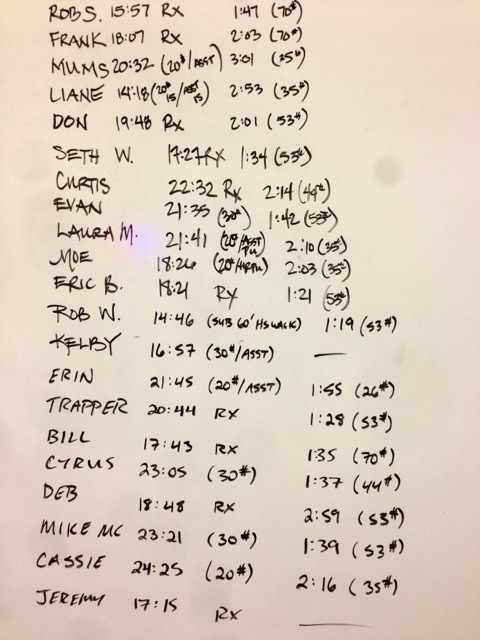 ROB S. 15:57 RX 1:47 (70#)
FRANK 18:07 RX 2:03 (70#)
MUMS 20:32 (20#/ASST) 3:01 (35#)
LIANE 14:18 (20#/ASST 15 15) 2:53 (35#)
DON 19:48 RX 2:01 (53#)
SETH W. 17:27 RX 1:34 (53#)
CURTIS 22:32 RX 2:14 (44#)
EVAN 21:35 (30#) 1:42 (53#)
LAURA M. 21:41 (20#/ASST PU) 2:10 (35)
MOE 18:26 (20#/HRPU) 2:03 (35#)
ERIC B. 18:21 RX 1:21 (53#)
ROB W. 14:46 (SUB 60' HS WALK) 1:19 (53#)
KELBY 16:57 (30#/ASST) —
ERIN 21:45 (20#/ASST) 1:55 (26#)
TRAPPER 20:44 RX 1:28 (53#)
BILL 17:43 RX 1:35 (70#)
CYRUS 23:05 (30#) 1:37 (44#)
DEB 18:48 RX 2:59 (53#)
MIKE MC 23:21 (30#) 1:39 (53#)
CASSIE 24:25 (20#) 2:16 (35#)
JEREMY 17:15 RX —